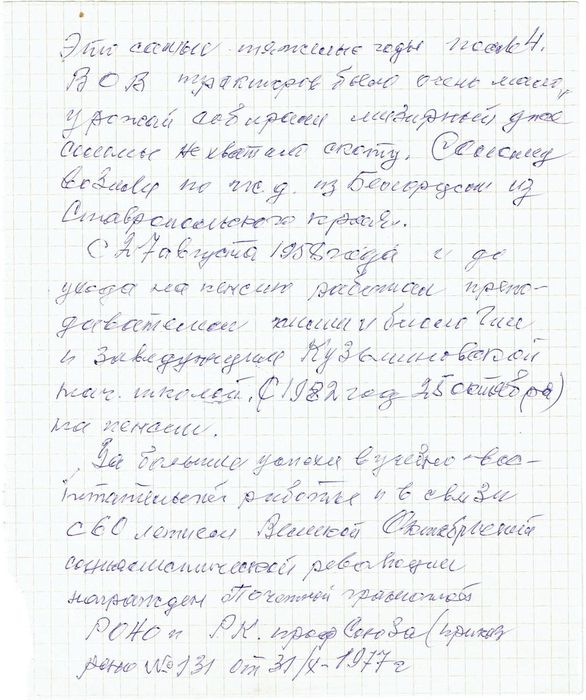 Это самые тяжелые годы после 4.
ВОВ тракторов было очень мало,
урожай собирали мизерный даже
соломы не хватало скоту. Солому
возили по ж.д. из Белгорода и из
Ставропольского края.
С 27 августа 1958 года и до
ухода на пенсию работал препо-
давателем химии и биологии
и заведующим Кузьминовской
нач. школой. (С 1982 год 25 октября)
на пенсии.
За большие успехи в учебно-вос-
питательной работе и в связи
с 60 летием Великой Октябрьской
социалистической революции
награжден Почетной грамотой
РОНО и РК. профСоюза (приказ
роно № 131 от 31/X-1977 г